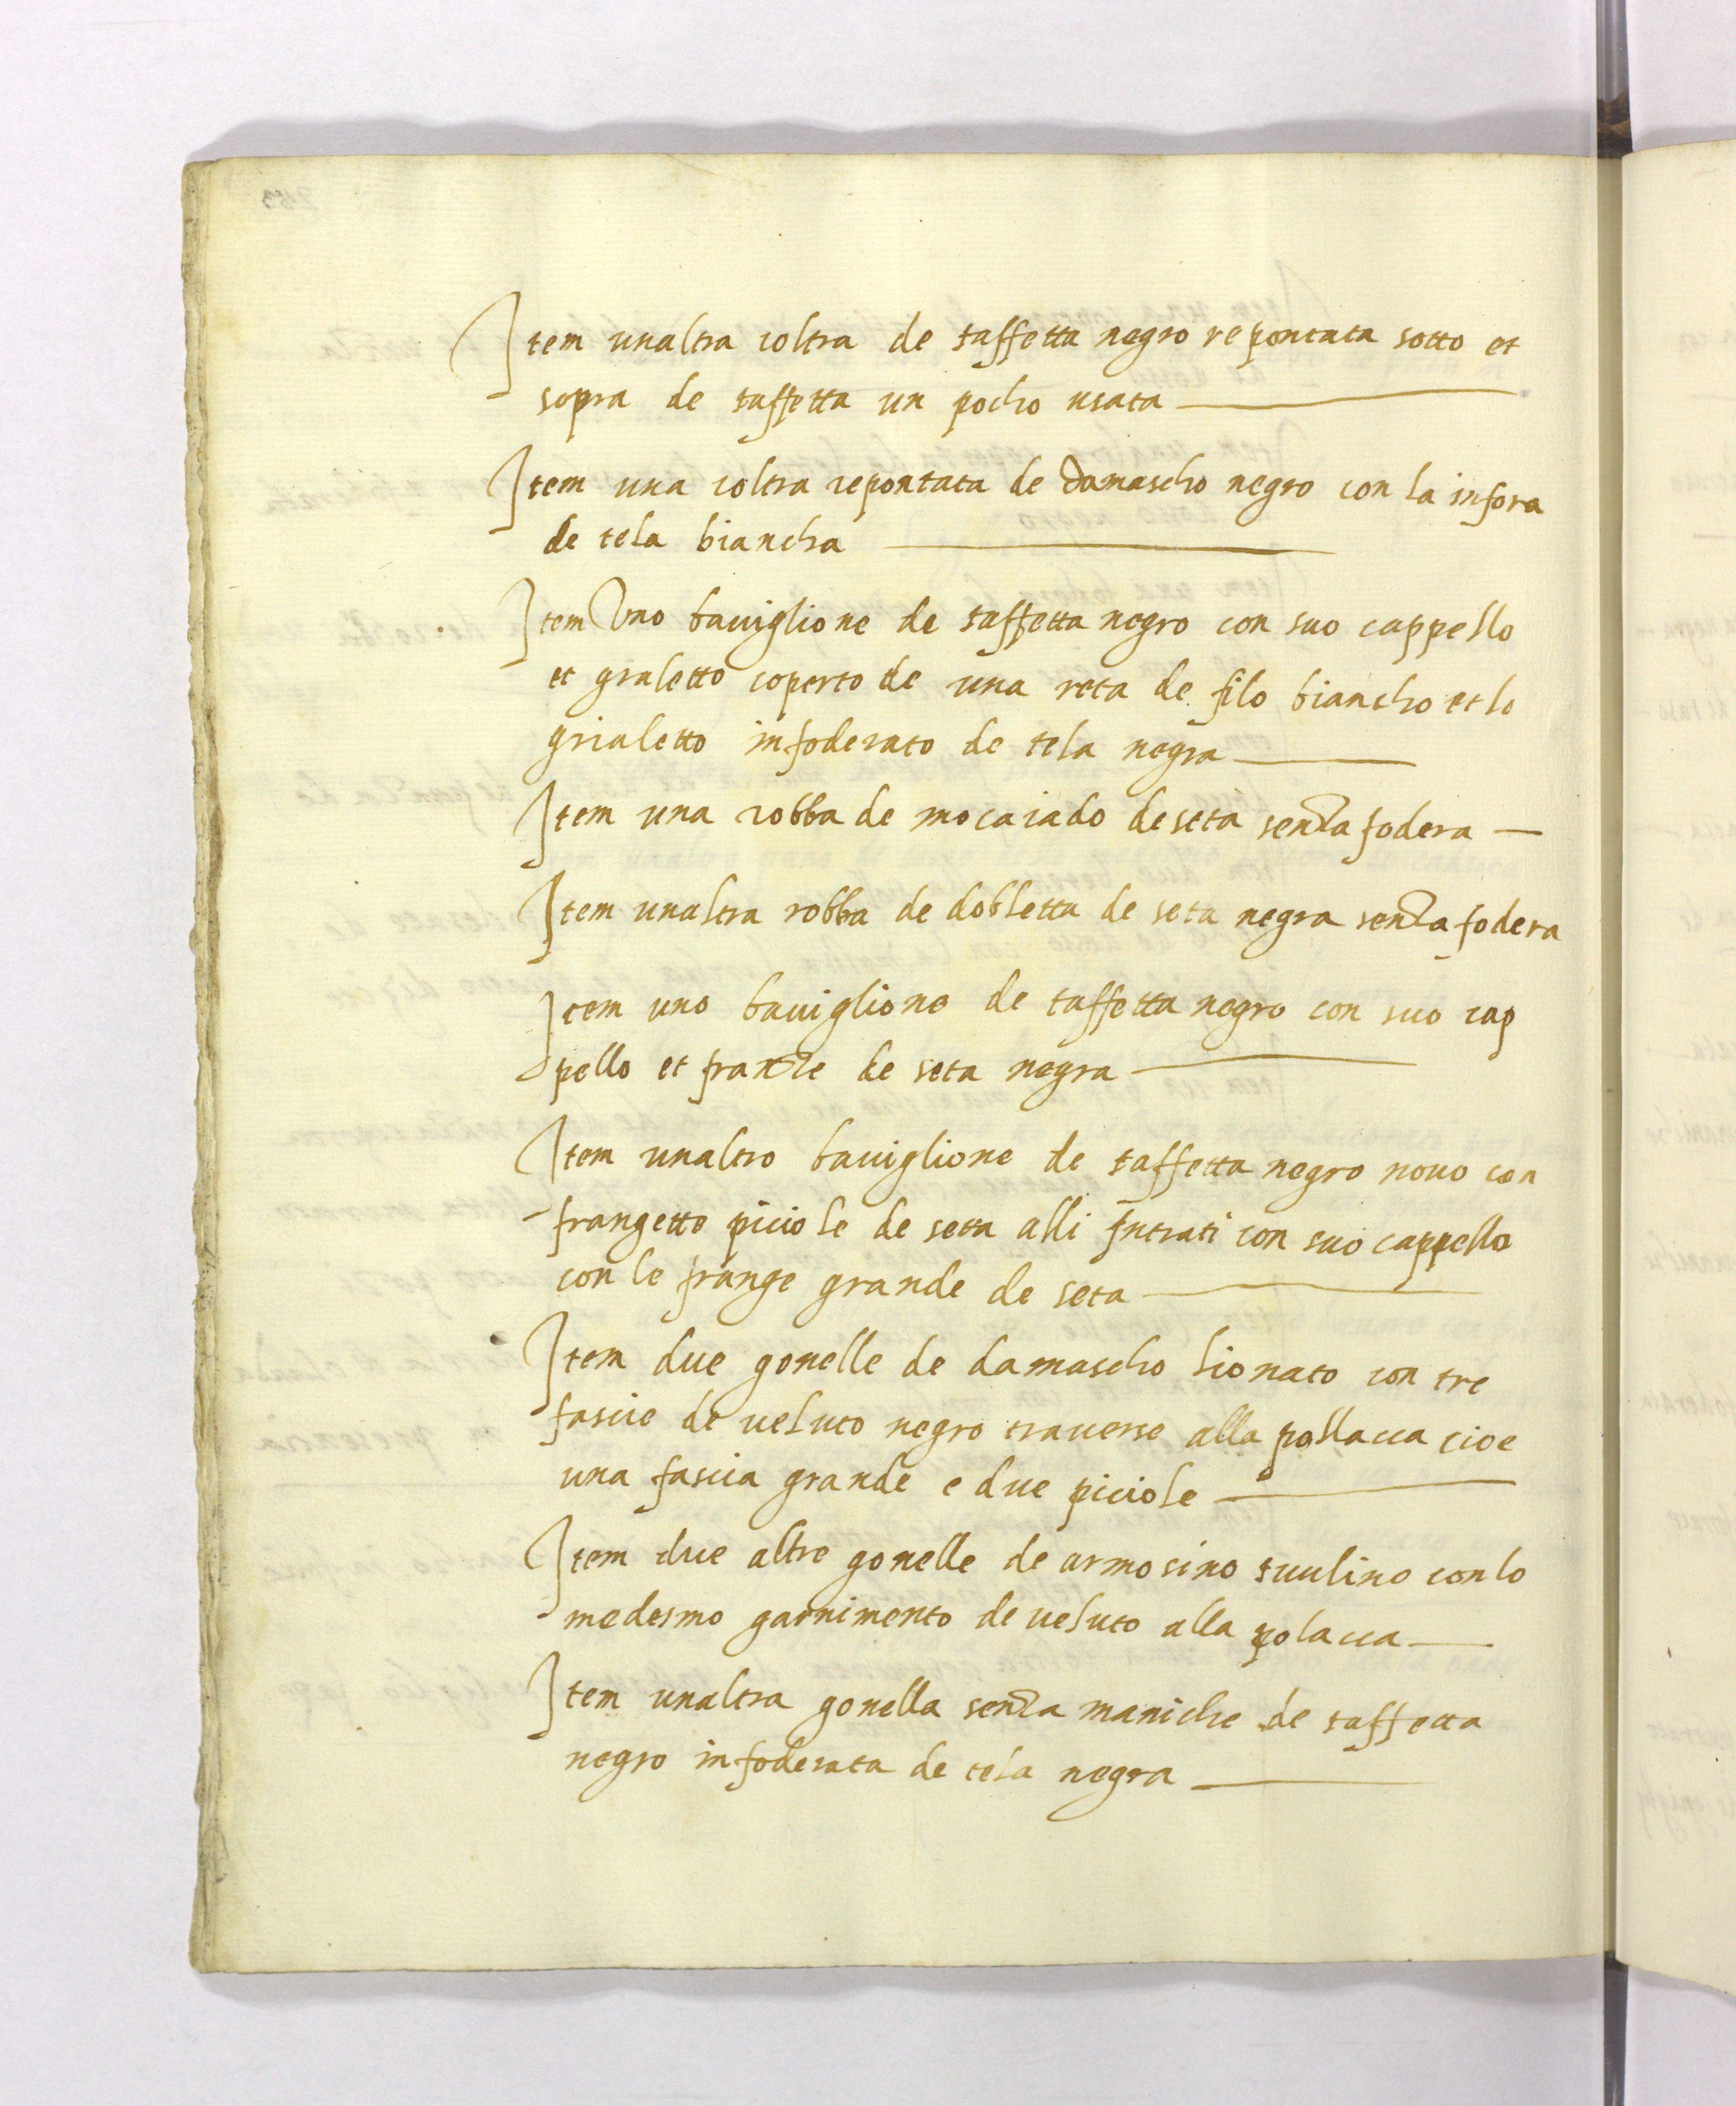 Item unaltra coltra de taffetta negro repontata sotto et
sopra de taffetta un pocho usata
Item una coltra repontata de damascho negro con la infora
de tela biancha
Item Uno baviglione de taffetta negro con suo cappello
et graletto coperto de una reta de filo biancho et lo
grialetto infoderato de tela negra
Item una robba de mocaiado de seta senza fodera
Item unaltra robba de dobletta de seta negra senza fodera
Item uno baviglione de taffetta negro con suo cap
pello et franze de seta negra
Item unaltro baviglione de taffetta negro novo con
frangette piciole de setta alli Intrati con suo cappello
con le frange grande de seta
Item due gonelle de damascho lionato con tre
fascie de veluto negro traverse alla pollacca cioe
una fascia grande e due piciole
Item due altre gonelle de armosino tuulino con lo
medesmo garnimento de veluto alla polacca
Item unaltra gonella senza maniche de taffetta
negro infoderata de tela negra